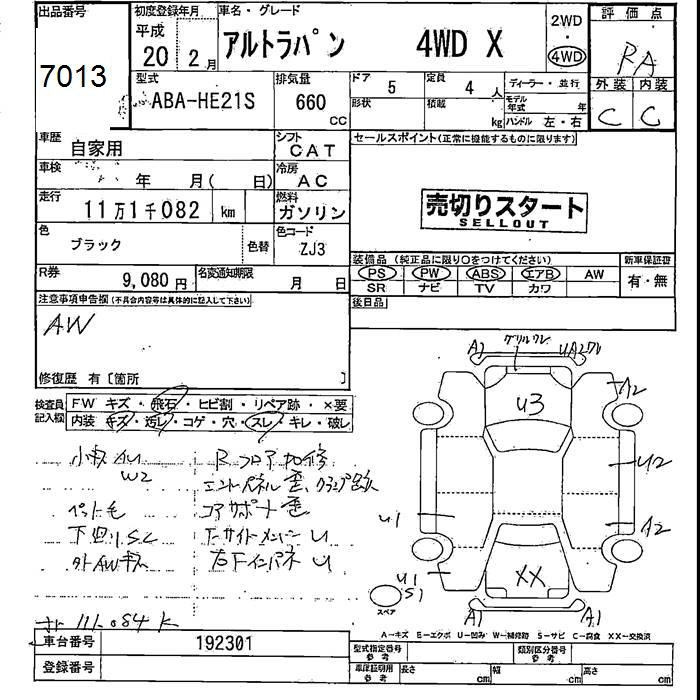 出品番号
7013
初度登録年月
平成
20 2月
車名・グレード
アルトラパン 4WD X
2WD
・
4WD
評価点
RA
外装 内装
C C
型式
ABA-HE21S
排気量
660
cc
ドア
5
定員
4人
ディーラー・並行
形状
積載
kg
モデル年式 年
ハンドル 左・右
車歴
自家用
シフト
CAT
車検
年 月( 日)
冷房
AC
走行
11万1千082 km
燃料
ガソリン
色
ブラック
色替
色コード
ZJ3
R券
9,080円
名変通知期限
月 日
セールスポイント(正常に機能するものに限ります)
売切りスタート
SELLOUT
装備品(純正品に限り○をつけてください)
PS PW ABS エアB AW
SR ナビ TV カワ
新車保証書
有・無
後日品
注意事項申告欄(不具合内容等は具体的に記入して下さい)
AW
修復歴 有〔箇所 〕
検査員記入欄
FW キズ・飛石・ヒビ割・リペア跡・×要
内装 キズ・汚レ・コゲ・穴・スレ・キレ・破レ
小キズAU Rフロア加修
W2 エンドパネル歪、クランプ跡
ペット毛 コアサポート歪
下廻りS.C FサイドメンバーU
外AWキズ 右FインパネU
111,084K
A1 グリルワレ UA2ワレ
A2
U3
U2
U1
A2
XX
U1
S1
スペア
A1 A1
A-キズ E-エクボ U-凹み W-補修跡 S-サビ C-腐食 XX-交換済
車台番号
192301
登録番号
型式指定番号
参考
類別区分番号
参考
車庫証明用
参考
長さ cm
幅 cm
高さ cm